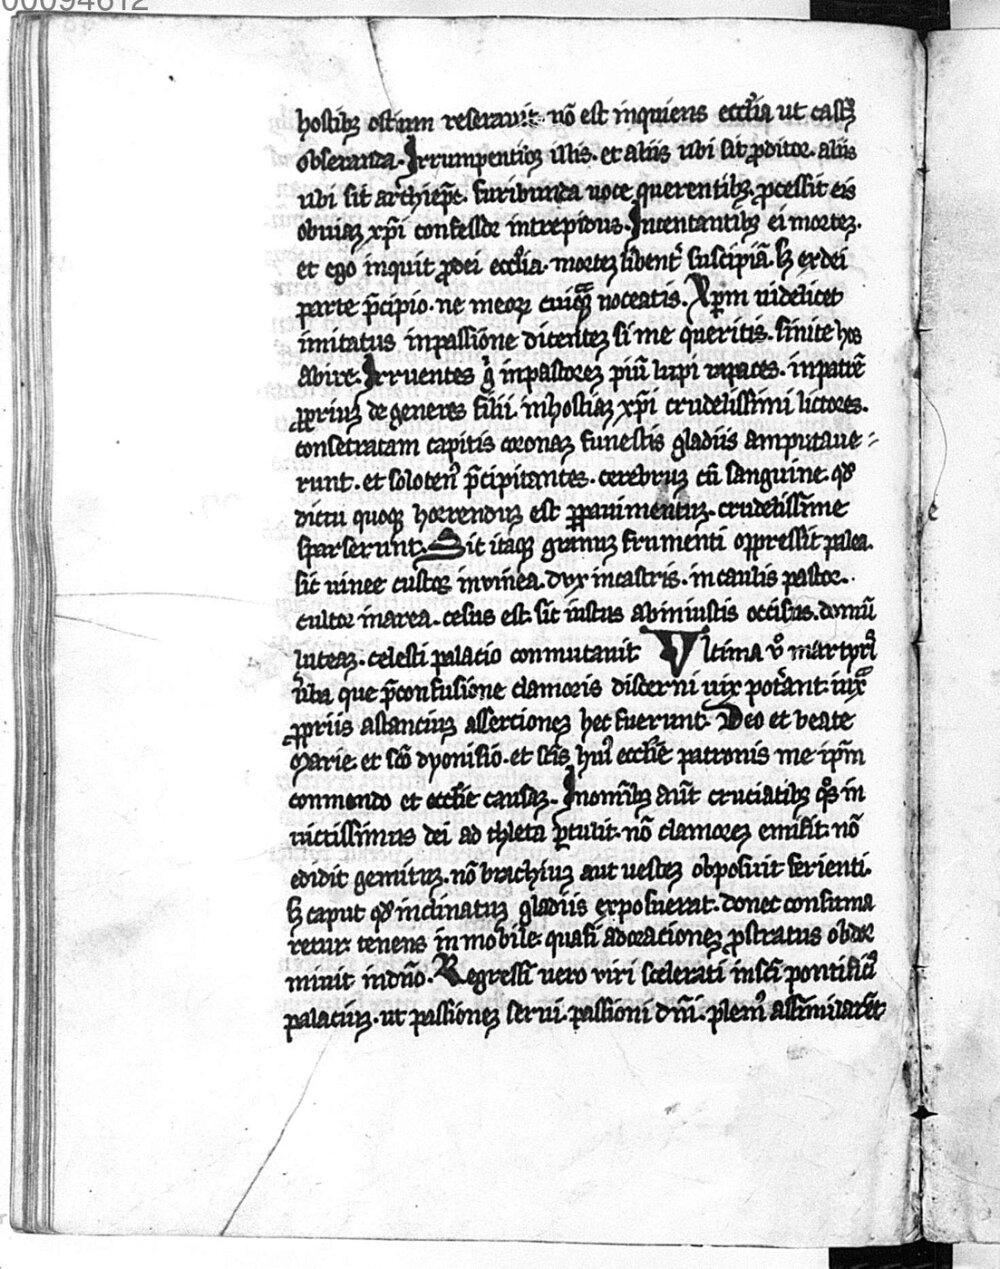 00094612
hostibꝫ ostium reserauit· nō est inquiens ecctia ut castꝝ
obseranda· Irrumpentibꝫ illis· et aliis ubi sit ꝓditor· aliis
ubi sit archiep̄c· furibunda uoce querentibꝫ· ꝓcessit eis
obuiaꝫ xp̄i confessor intrepidus· Intentantibꝫ ei morteꝫ·
et ego inquit ꝓ dei ecctia· morteꝫ libent̉ suscipiā· sꝫ ex dei
parte p̄cipio· ne meoꝝ cuiqᷓꝫ noceatis· Xp̄m uidelicet
imitatus inpassione dicenteꝫ si me queritis· sinite hos
abire· Irruentes g̉ inpastoreꝫ piū lupi rapaces· inpatrē
ꝓpriuꝫ degeneres filii· inhostiaꝫ xp̄i crudelissimi lictores·
consecratam capitis coronaꝫ funestis gladiis amputaue⸗
runt· et solotenꝰ p̄cipitantes· cerebruꝫ cū sanguine· qd̄
dictu quoqꝫ horrenduꝫ est ꝑpauimentuꝫ· crudelissime
sparserunt· Sic itaqꝫ granuꝫ frumenti oppressit palea·
sic uinee custos inuinea· dux incastris· incaulis pastor·
cultor inarea· cesus est· sic iustus abiniustis occisus· domū
luteaꝫ· celesti palacio conmutauit Vltima ů martyri
ůba que p̄confusione clamoris discerni uix poťant· iuxᷓ
ꝓpriis astanciuꝫ assercioneꝫ hec fuerunt· Deo et beate
Marie et scō dyonisio· et scīs huiꝰ eccťie patronis me ip̄m
conmendo et eccťie causaꝫ· Inomībꝫ aūt cruciatibꝫ qͦs in
uictissimus dei ad thleta ꝑtulit· nō clamoreꝫ emisit· nō
edidit gemituꝫ· nō brachiuꝫ aut uesteꝫ obposuit ferienti·
sꝫ caput qd̄ inclinatuꝫ gladiis exposuerat· donec consuma
retur· tenens inmobile· quasi adoracioneꝫ ꝓstratus obdor
miuit indn̄o· Regressi uero uiri scelerati insc̄i pontificꝭ
palaciuꝫ· ut passioneꝫ serui· passioni dn̄i· pleniꝰ assimilarēt